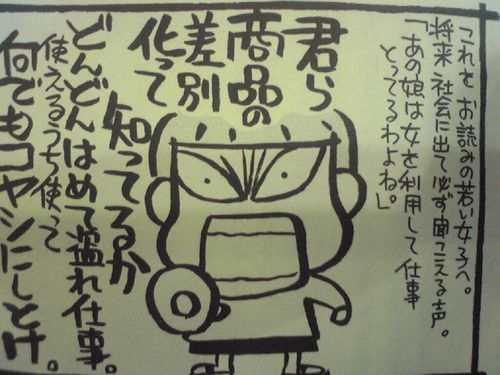 これをお読みの若い女子へ。
将来社会に出て必ず聞こえる声。
「あの娘は女を利用して仕事
とってるわよね。」
君ら
商品の
差別
化って
知ってるか
どんどんはめて盗れ仕事。
使えるうち使って
何でもコヤシにしとけ。